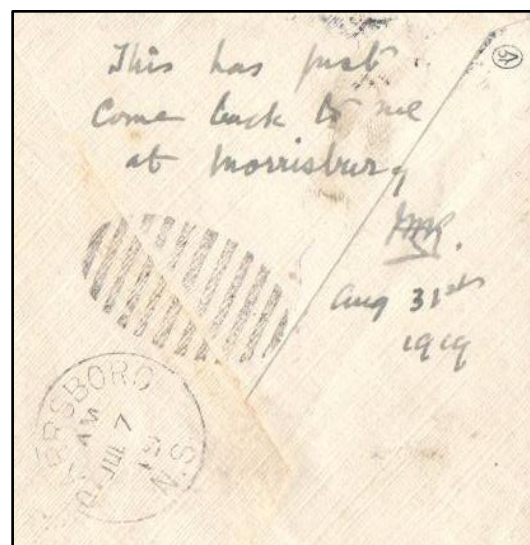 This has just
come back to me
at Morrisburg
Aug 31st
1919
PARRSBORO
N.S.
AM
JUL 7